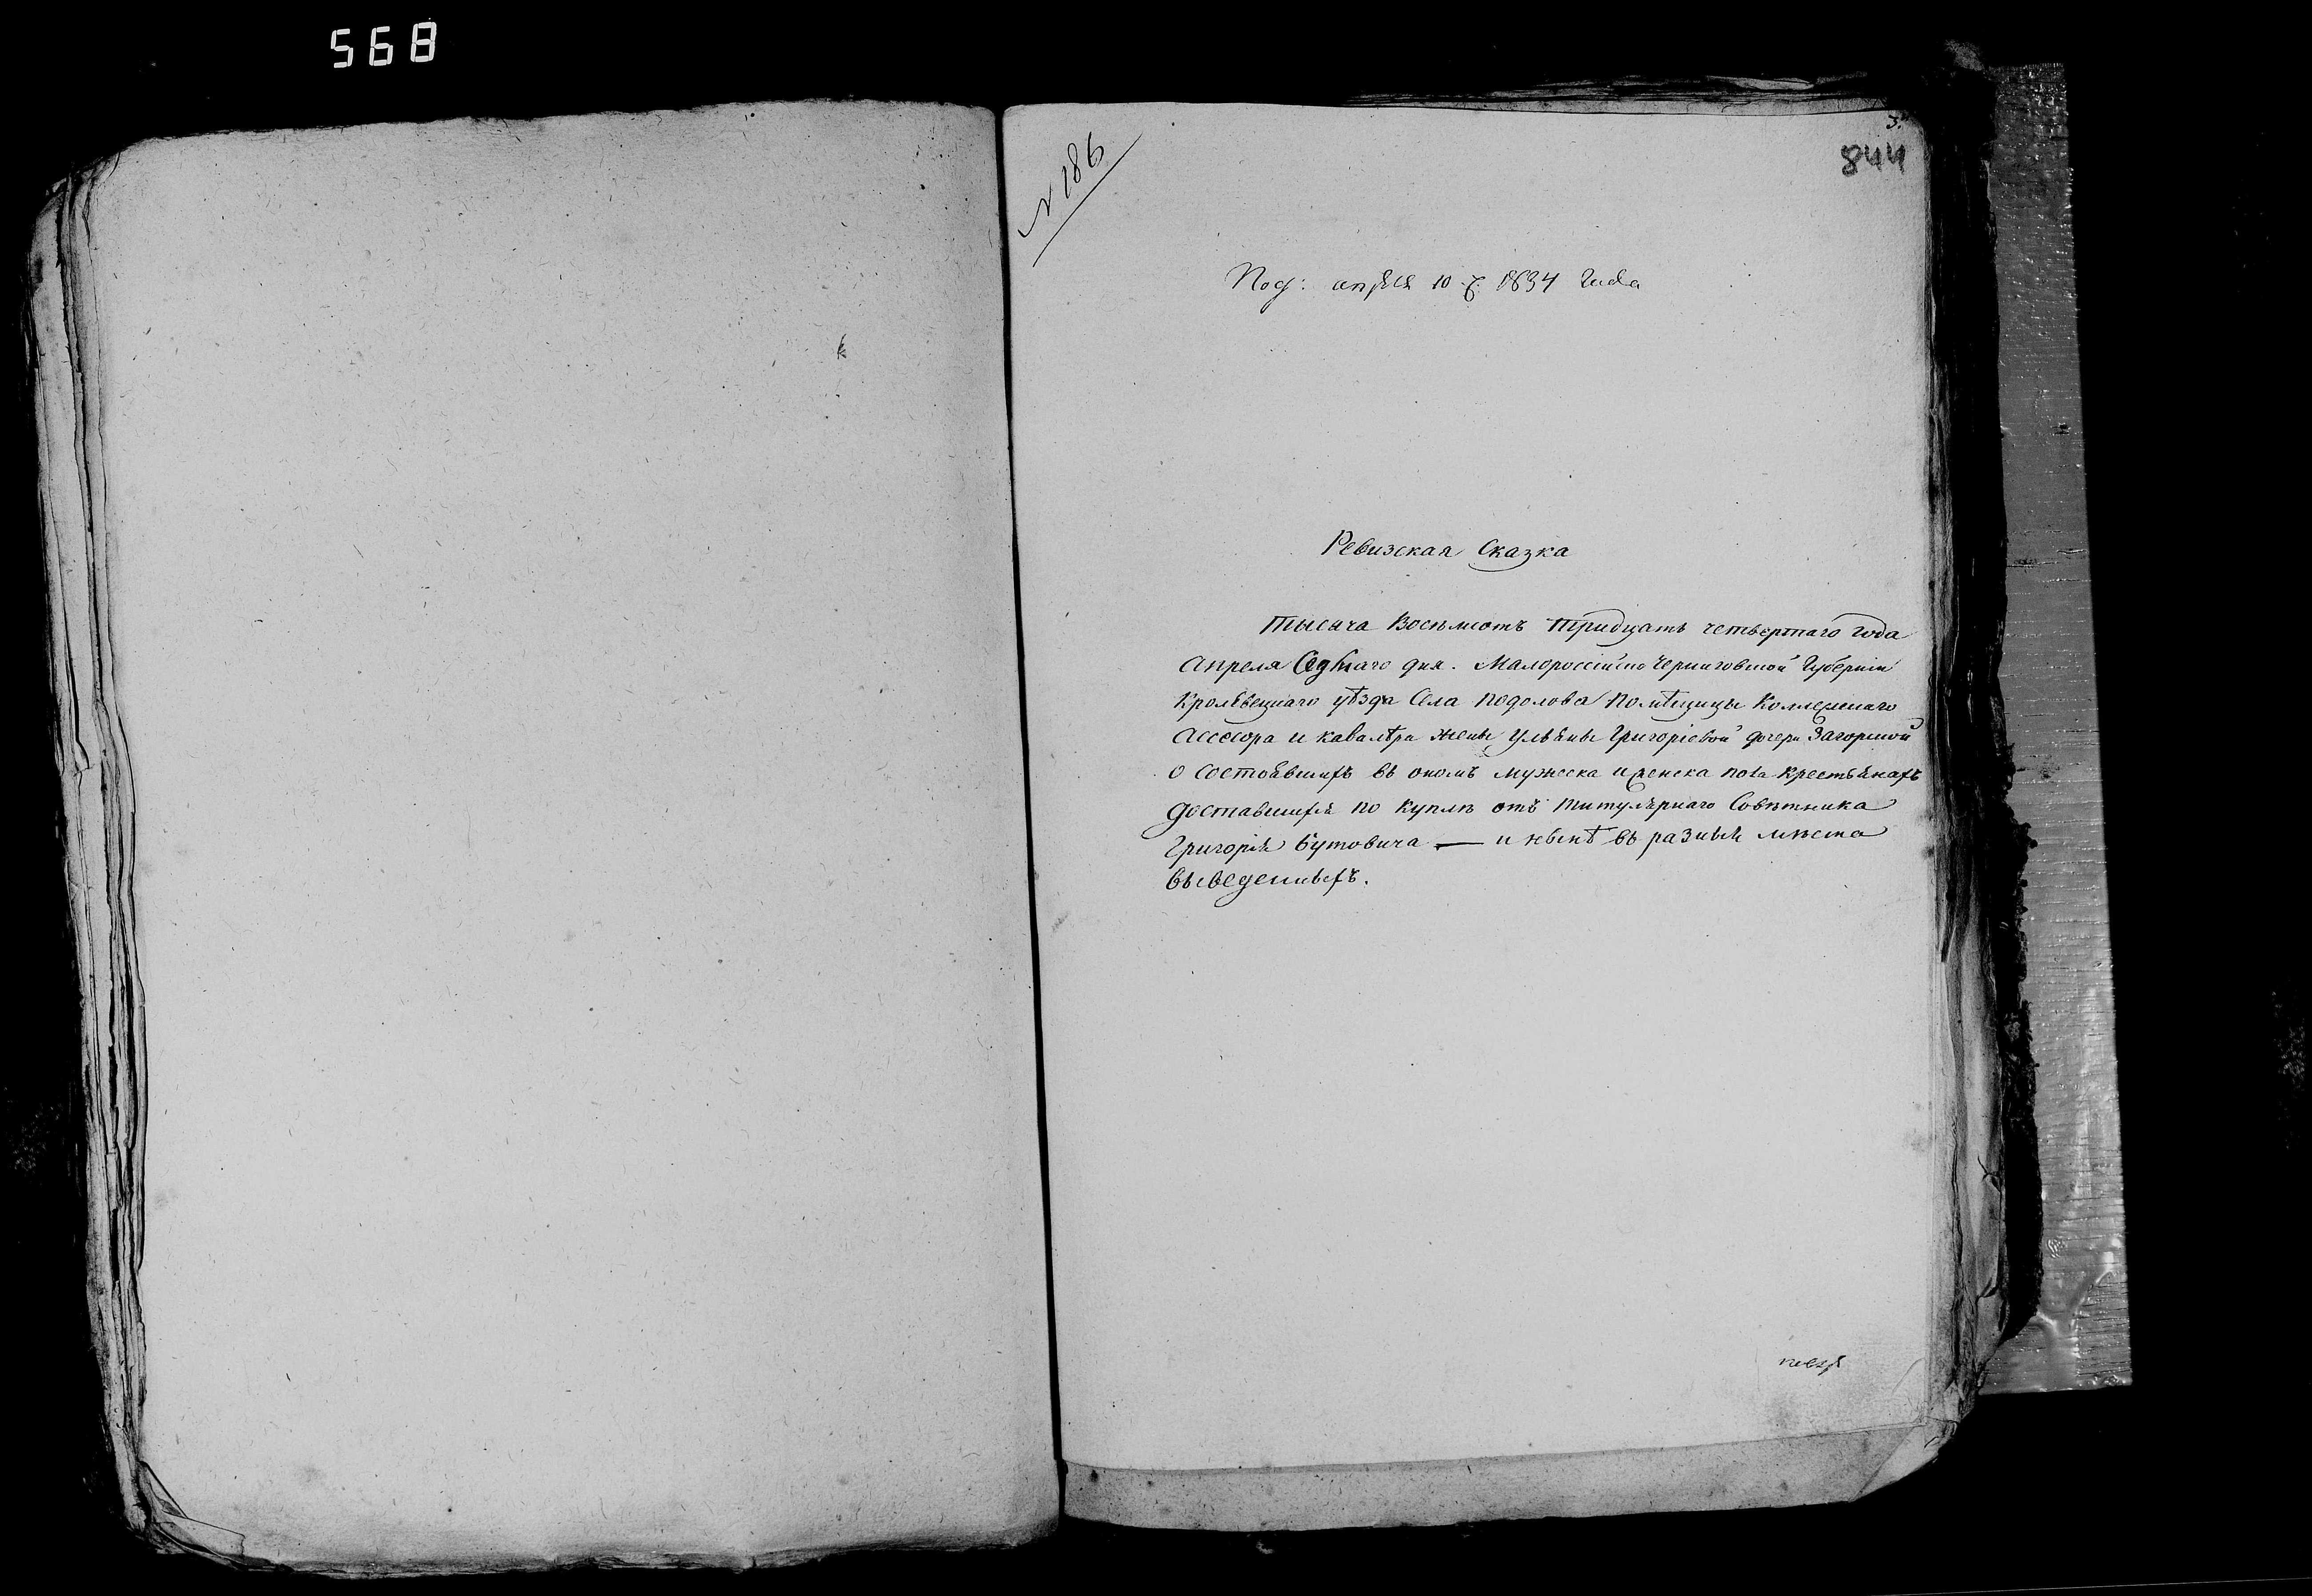 568
№ 186
3.
844
Под: апреля 10 д. 1834 года
Ревизская Сказка
Тысяча Восемьсотъ Тридцать четвертаго года
Апреля Седмаго дня. Малороссійско Черниговской Губерніи
Кролѣвецкаго уѣзда Села Подолова Помѣщицы Коллежскаго
Ассесора и кавалѣра жены Ульяны Григоріевой дочери Загорской
о Состоявшихъ въ ономъ мужеска и женска пола Крестьянахъ
доставшихся по Куплѣ отъ Титулярнаго Совѣтника
Григорія Бутовича — и нынѣ въ разныя мѣста
выведенныхъ.